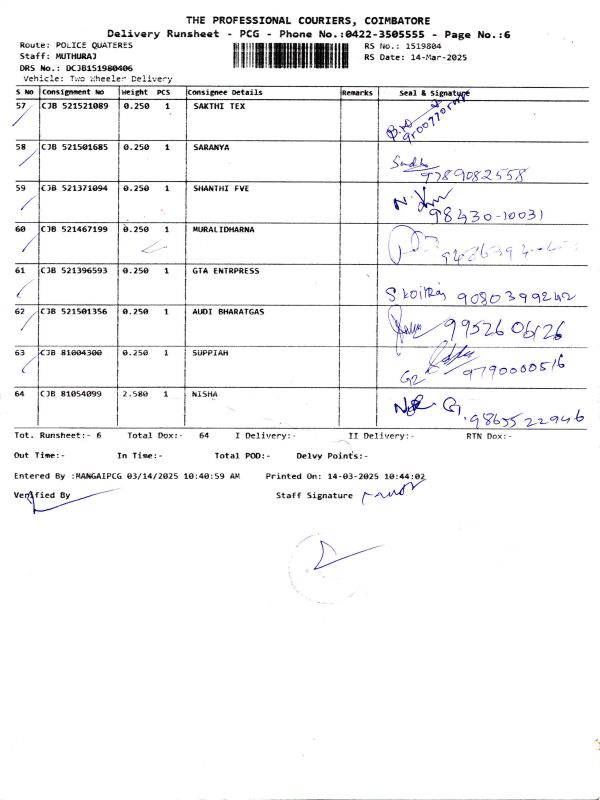 THE PROFESSIONAL COURIERS, COIMBATORE
Delivery Runsheet - PCG - Phone No.:0422-3505555 - Page No.:6
Route: POLICE QUATERES
RS No.: 1519804
Staff: MUTHURAJ
RS Date: 14-Mar-2025
DRS No.: DCJB151980406
Vehicle: Two Wheeler Delivery
S No Consignment No Weight PCS Consignee Details Remarks Seal & Signature
57 CJB 521521089 0.250 1 SAKTHI TEX
58 CJB 521501685 0.250 1 SARANYA
9789082558
59 CJB 521371094 0.250 1 SHANTHI FVE
98430-10031
60 CJB 521467199 0.250 1 MURALIDHARNA
61 CJB 521396593 0.250 1 GTA ENTRPRESS
9080399242
62 CJB 521501356 0.250 1 AUDI BHARATGAS
9952606126
63 CJB 81004300 0.250 1 SUPPIAH
G2 9790000516
64 CJB 81054099 2.580 1 NISHA
9865522946
Tot. Runsheet:- 6 Total Dox:- 64 I Delivery:- II Delivery:- RTN Dox:-
Out Time:- In Time:- Total POD:- Delvy Points:-
Entered By :MANGAIPCG 03/14/2025 10:40:59 AM Printed On: 14-03-2025 10:44:02
Verified By Staff Signature